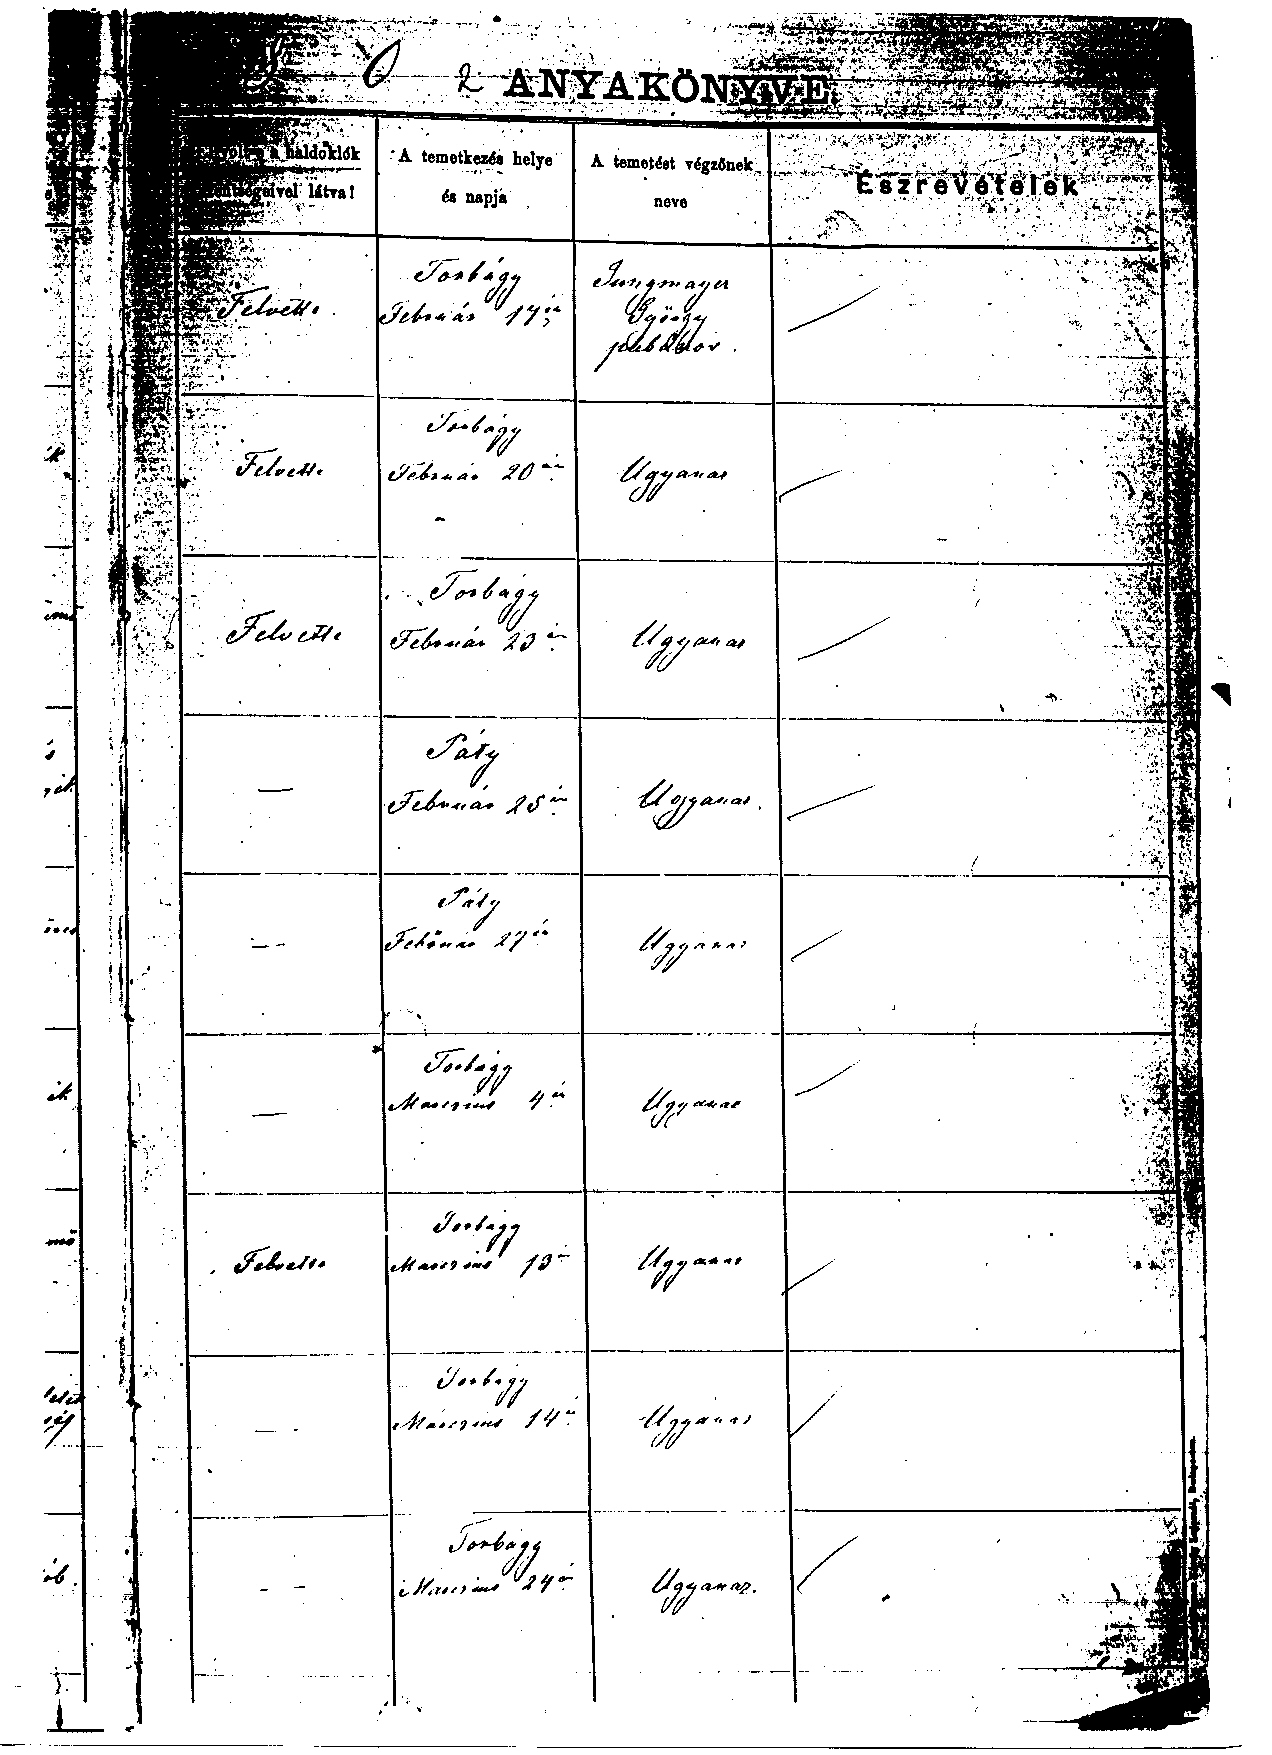 2 ANYAKÖNYVE.
a haldoklók
látva!
A temetkezés helye
és napja
A temetést végzőnek
neve
Észrevételek
Felvette.
Torbágy
Február 17én
Jungmayer
György
plébános.
Felvette
Torbágy
Február 20án
Ugyanaz
Felvette
Torbágy
Február 23án
Ugyanaz
—
Páty
Február 25én
Ugyanaz.
—
Páty
27én
Ugyanaz
—
Torbágy
Marczius 4én
Ugyanaz
Felvette
Torbágy
Marczius 13án
Ugyanaz
—
Torbágy
Márczius 14én
Ugyanaz
—
Torbágy
Marczius 24én
Ugyanaz.